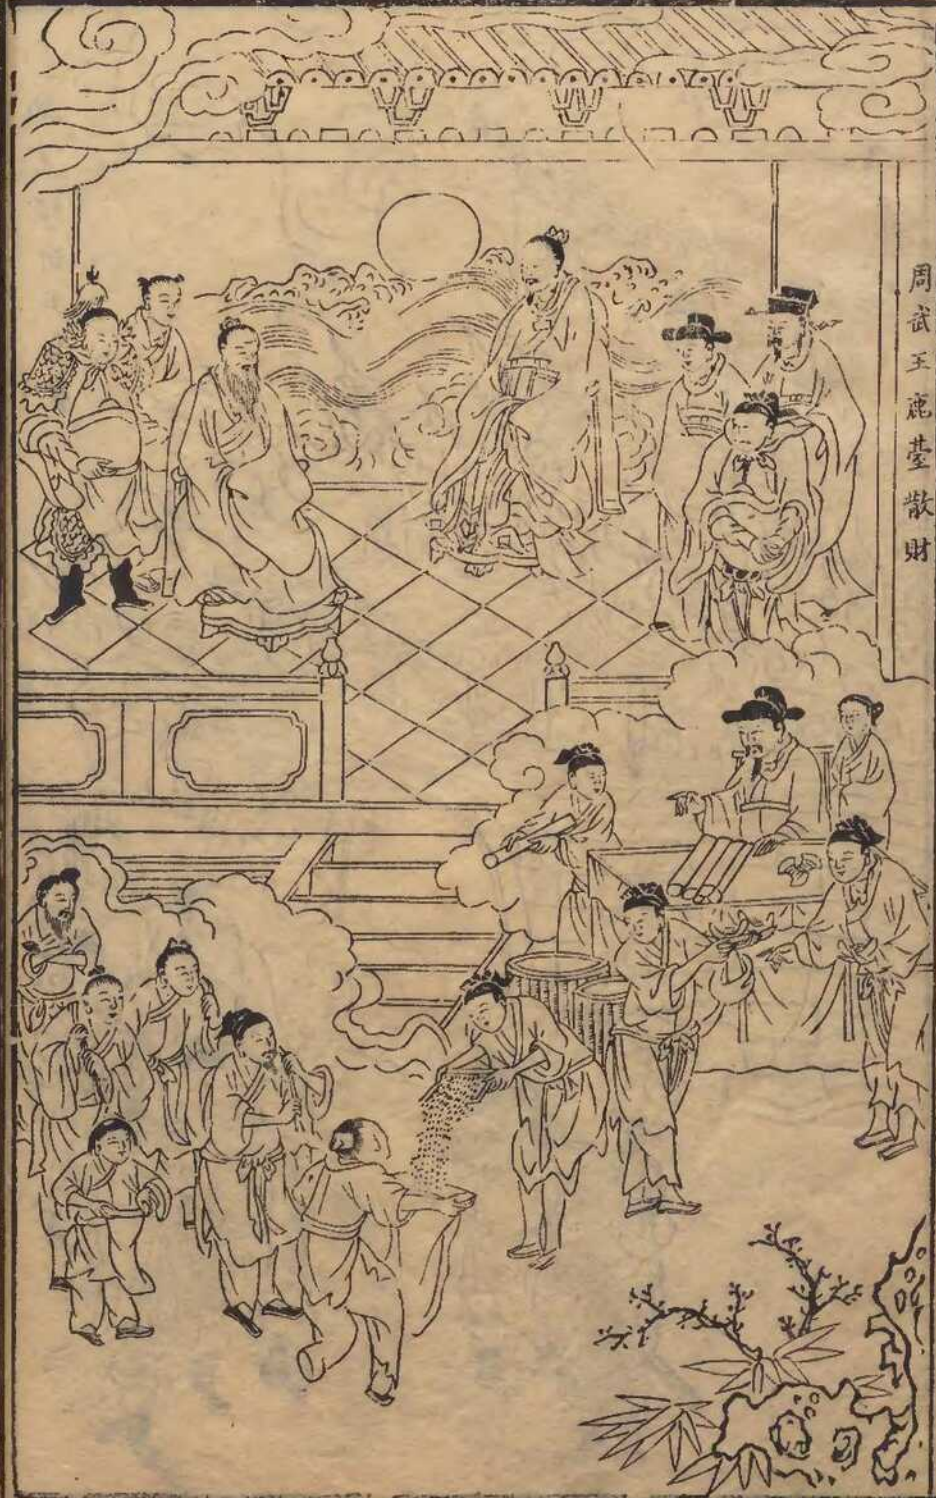 周武王鹿臺散財